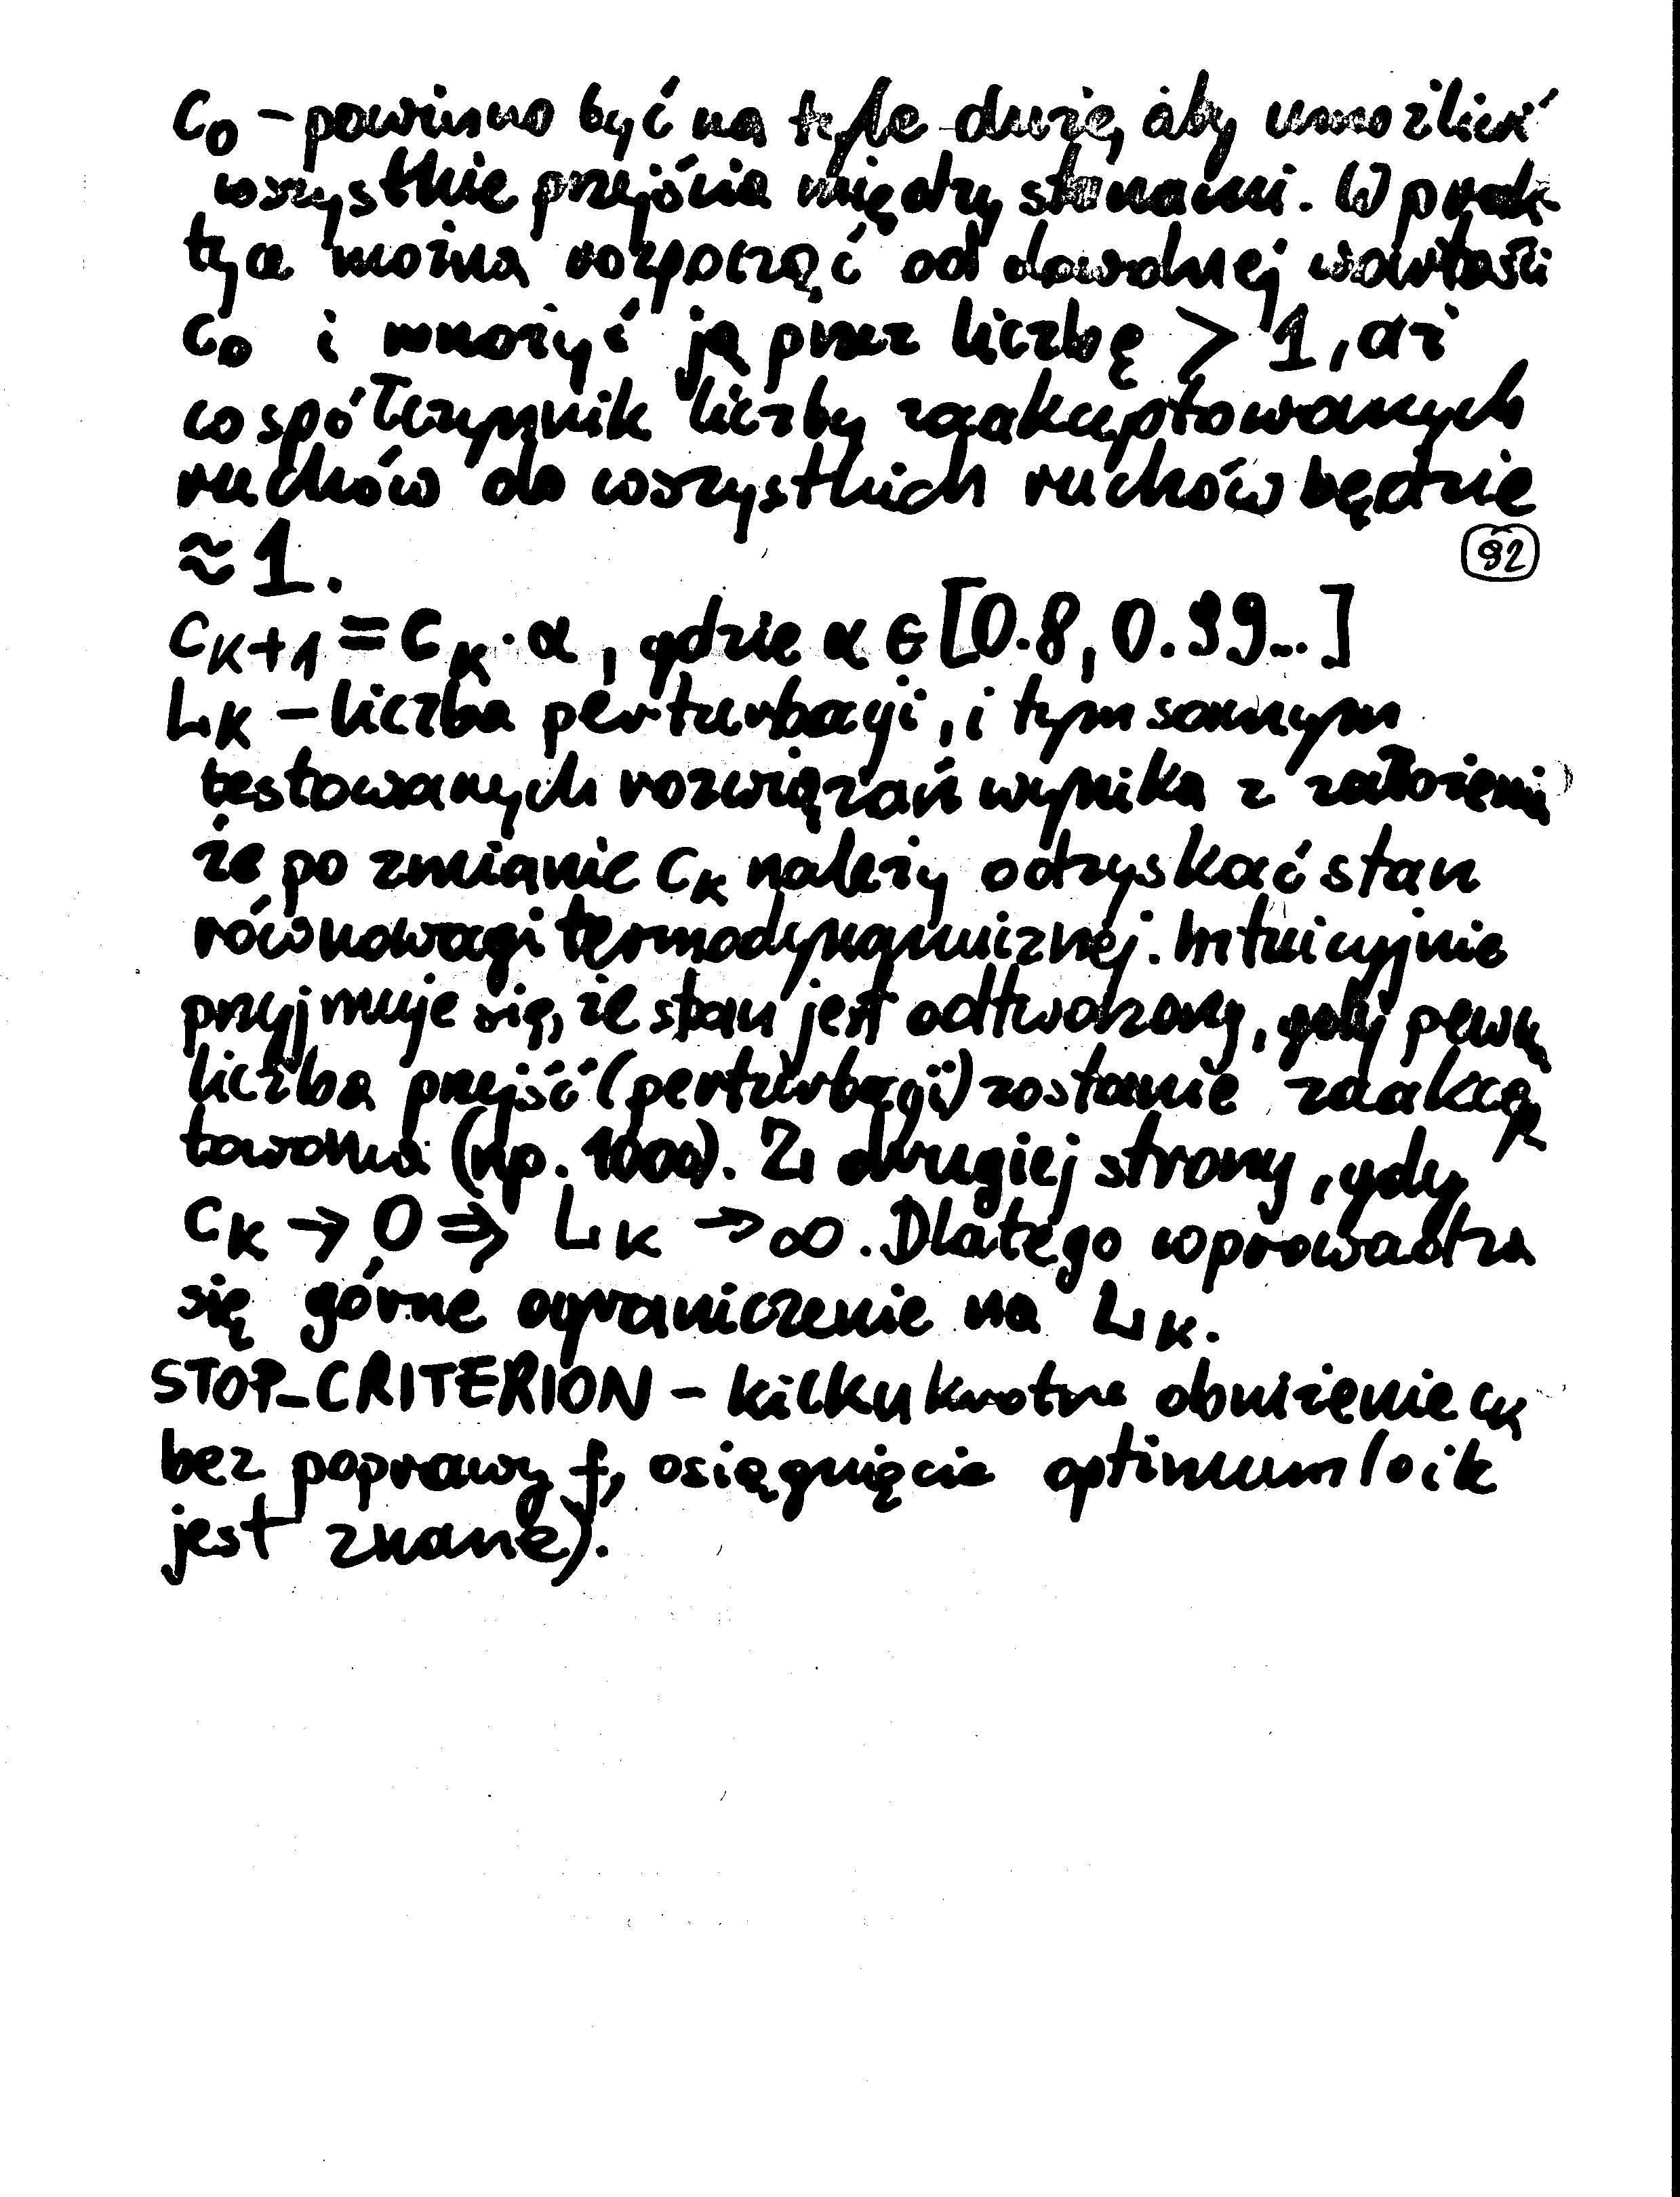 c₀ – powinno być na tyle duże, aby umożliwić
wszystkie przejścia między stanami. W prak-
tyce można rozpocząć od dowolnej wartości
c₀ i mnożyć ją przez liczbę > 1, aż
współczynnik liczby zaakceptowanych
ruchów do wszystkich ruchów będzie
≈ 1.
92
cₖ₊₁ = cₖ · α, gdzie α ∈ [0.8, 0.99...]
Lₖ – liczba perturbacji, i tym samym
testowanych rozwiązań wynika z założenia
że po zmianie cₖ należy odzyskać stan
równowagi termodynamicznej. Intuicyjnie
przyjmuje się, że stan jest odtworzony, gdy pewna
liczba przejść (perturbacji) zostanie zaakcep
towana (np. 1000). Z drugiej strony, gdy
cₖ → 0 ⇒ Lₖ → ∞. Dlatego wprowadza
się górne ograniczenie na Lₖ.
STOP_CRITERION – kilkukrotne obniżenie cₖ
bez poprawy f, osiągnięcie optimum (o ik
jest znane).